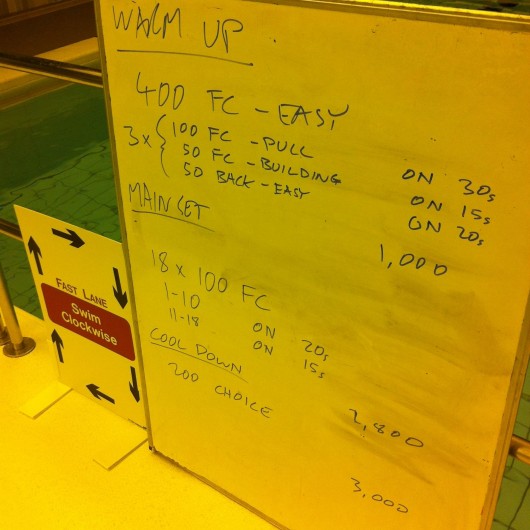 WARM UP
400 FC - EASY
3x { 100 FC - PULL ON 30s
50 FC - BUILDING ON 15s
50 BACK - EASY ON 20s
1,000
MAIN SET
18 x 100 FC
1-10 ON 20s
11-18 ON 15s
2,800
COOL DOWN
200 CHOICE
3,000
FAST LANE
Swim
Clockwise